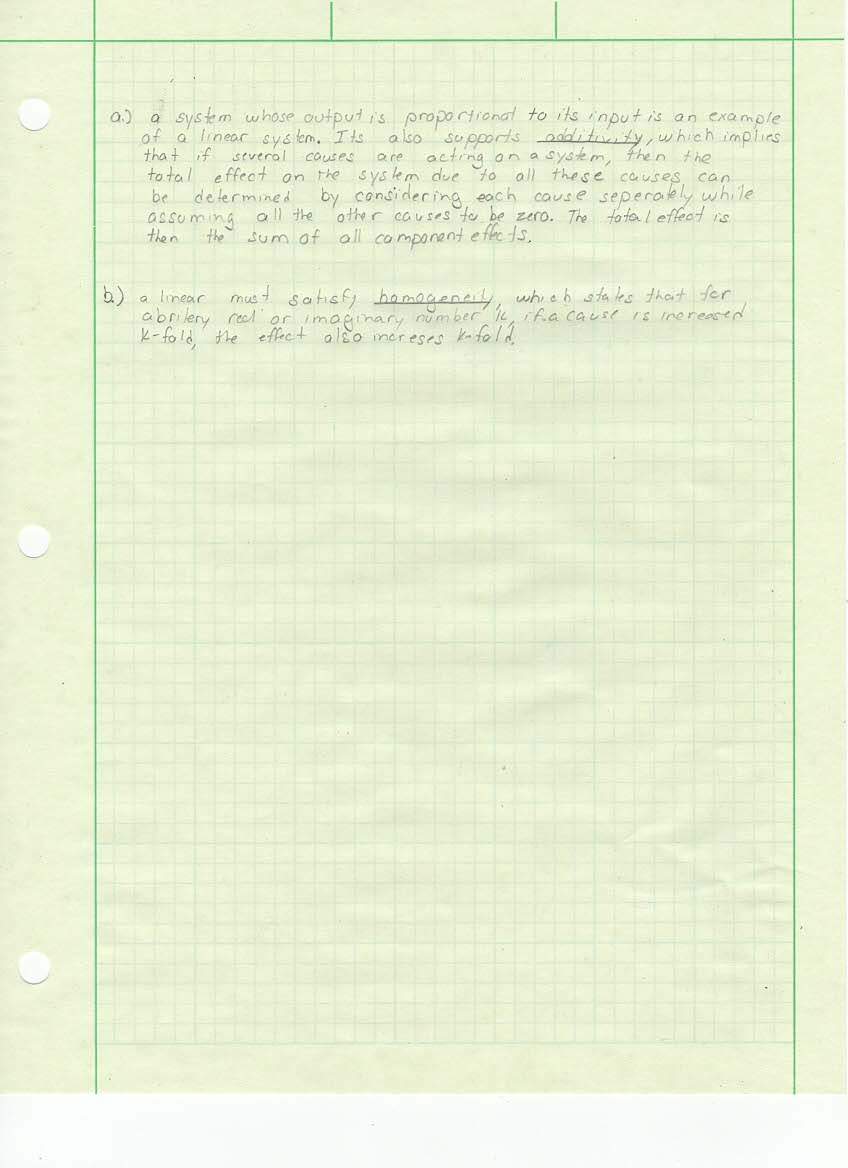 a.) a system whose output is proportional to its input is an example
of a linear system. Its also supports additivity, which implies
that if several causes are acting on a system, then the
total effect on the system due to all these causes can
be determined by considering each cause seperately while
assuming all the other causes to be zero. The total effect is
then the sum of all component effects.
b.) a linear must satisfy homogeneity, which states that for
abritery real or imaginary number k, if a cause is increased
k-fold, the effect also increses k-fold.